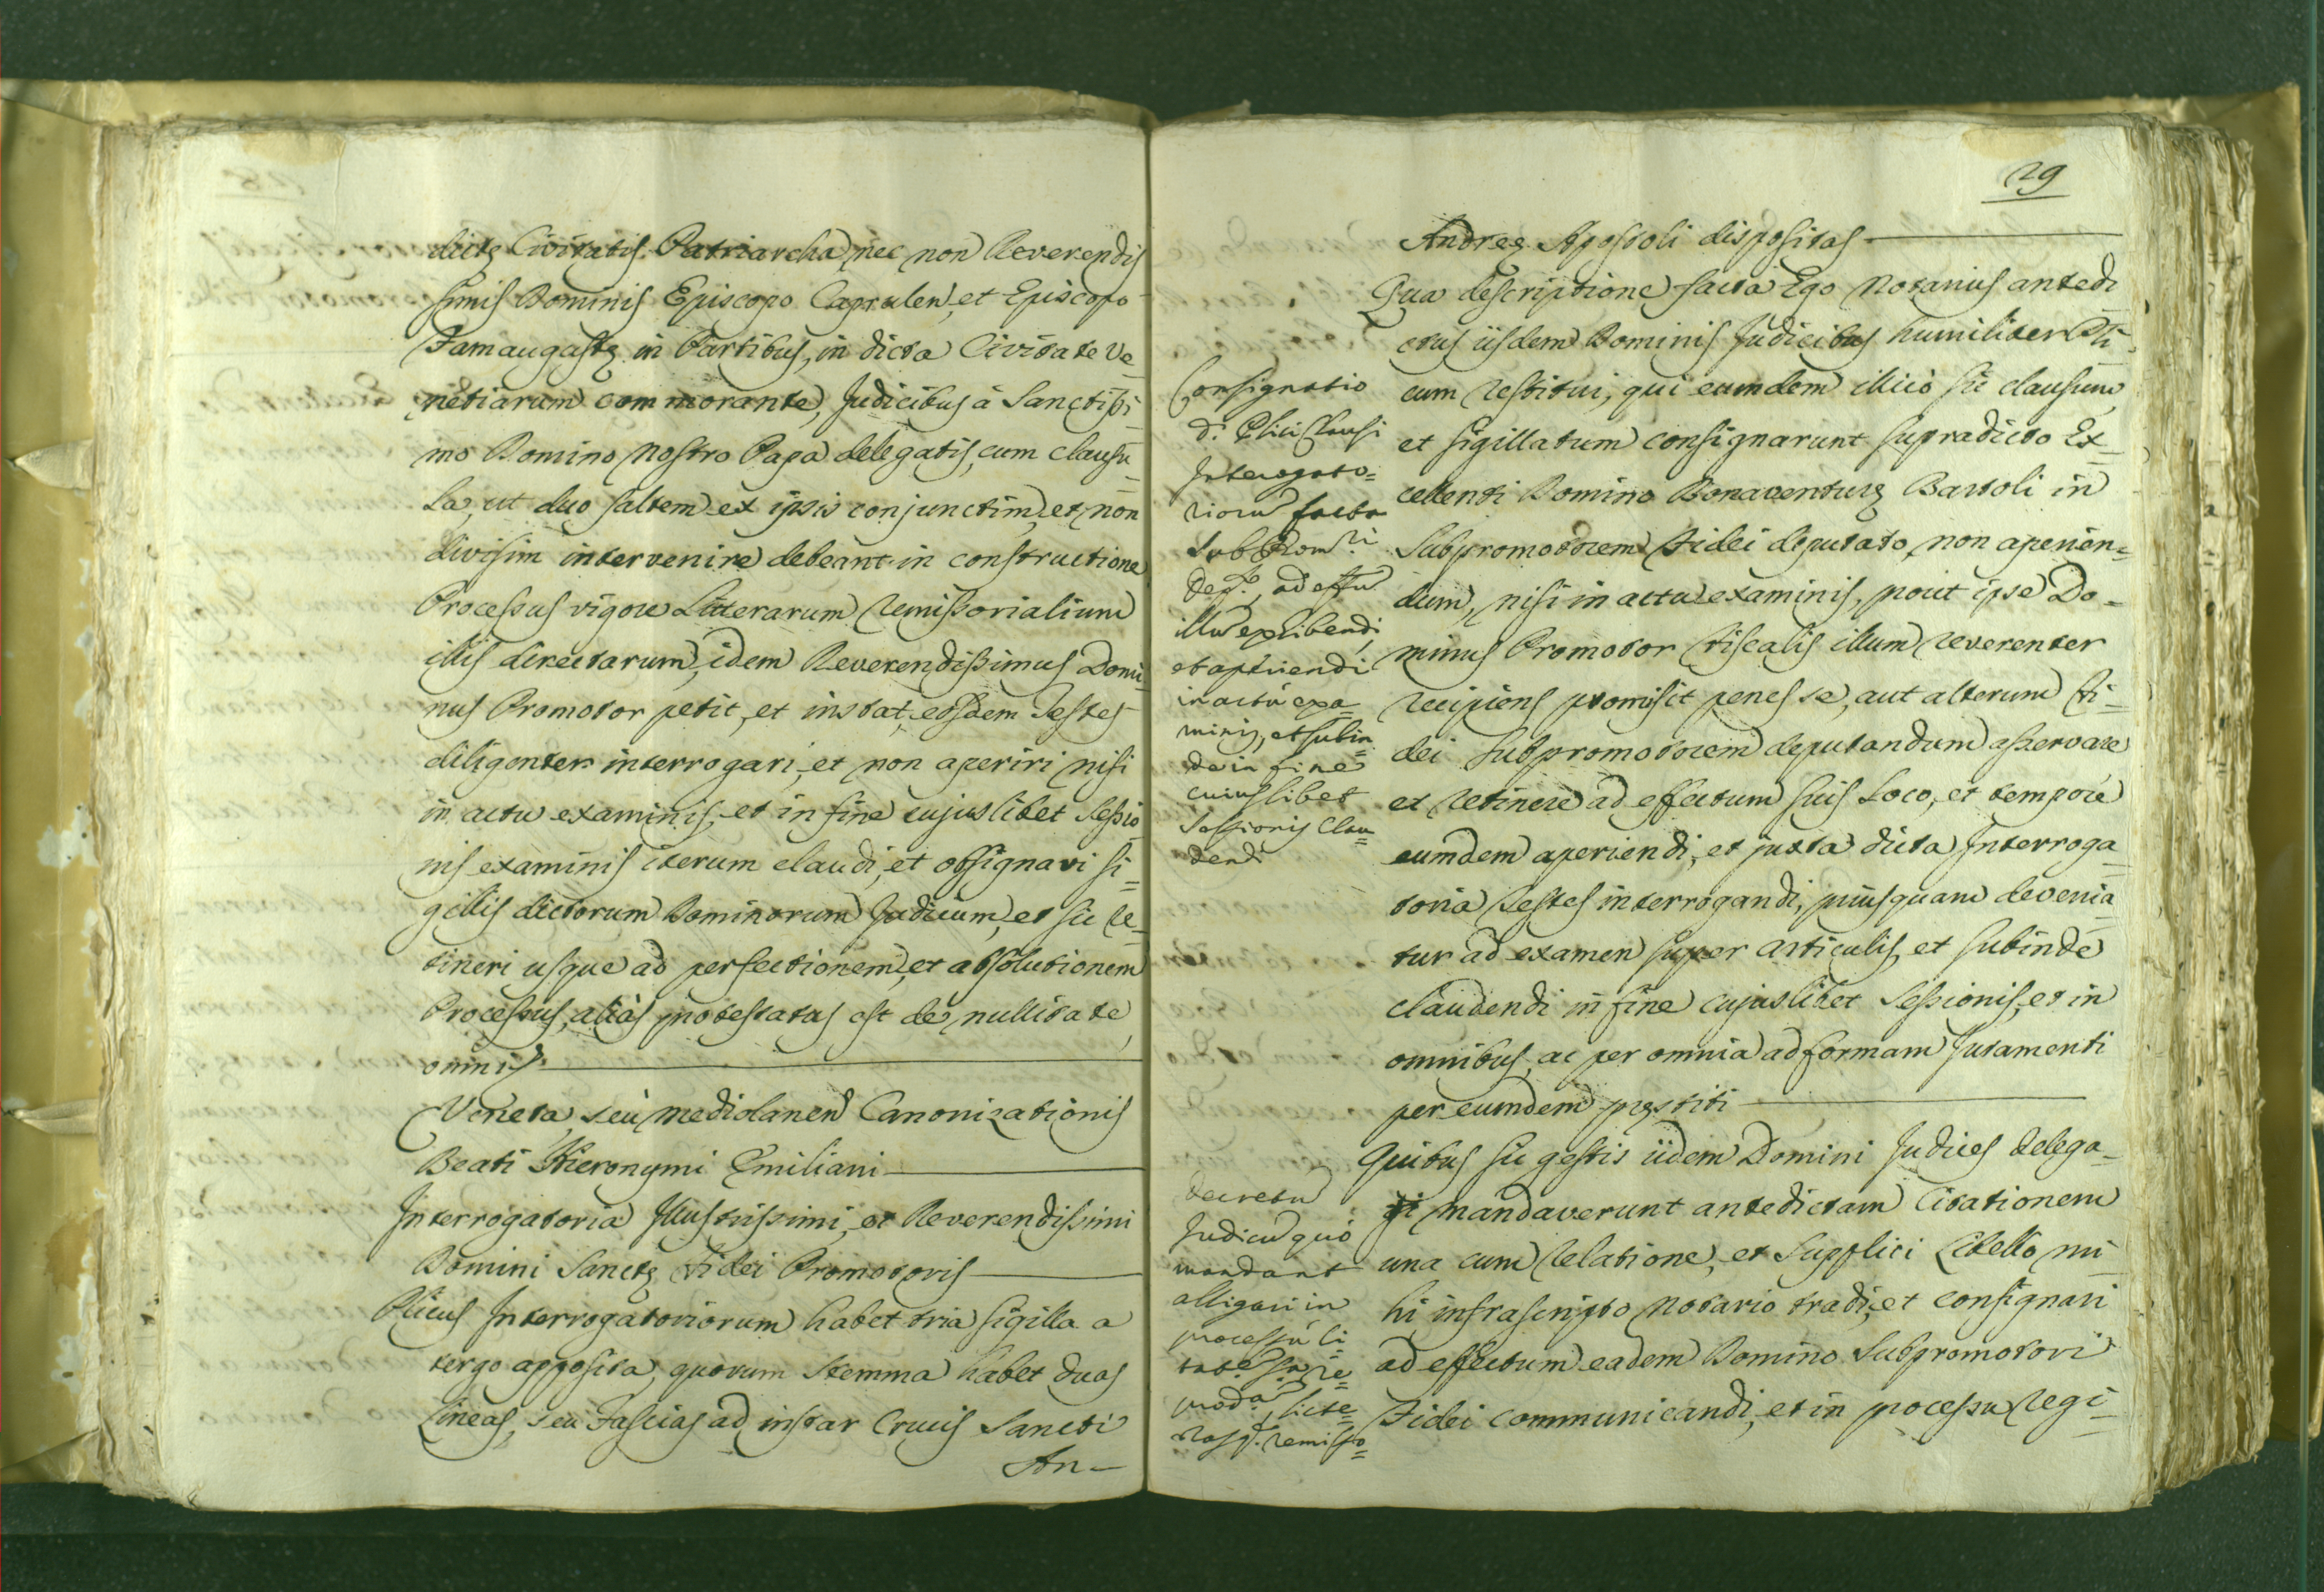 dictę Civitatis Patriarcha, nec non Reverendis
simis Dominis Episcopo Caprulen, et Episcopo
Famaugastę in Partibus, in dicta Civitate Ve_
netiarum commorante, Judicibus à Sanctissi_
mo Domino Nostro Papa delegatis, cum clausu_
la, ut duo saltem ex ipsis conjunctim, et non
divisim intervenire debeant in constructione
Processus vigore Litterarum remissorialium
illis directarum, idem Reverendissimus Domi_
nus Promotor petit, et instat, eosdem Testes
diligenter interrogari, et non aperiri nisi
in actu examinis, et in fine cujuslibet Sessio_
nis examinis iterum claudi, et obsignari si_
gillis dictorum Dominorum Judicum, et sic re_
tineri usque ad perfectionem, et absolutionem
Processus, aliàs protestatus est de nullitate
omnis.
Veneta, seù Mediolanen Canonizationis
Beati Hieronymi Emiliani
Interrogatoria Illustrissimi, et Reverendissimi
Domini Sanctę Fidei Promotoris
Plicus Interrogatoriorum habet tria sigilla a
tergo apposita, quorum Stemma habet duas
Lineas, seu Fascias ad instar Crucis Sancti
An_
29
Andreę Apostoli dispositas
Qua descriptione facta Ego Notarius antedi
ctus iisdem Dominis Judicibus humiliter Pli_
cum restitui, qui eumdem illico sic clausum,
et sigillatum consignarunt supradicto Ex_
cellenti Domino Bonaventurę Bartoli in
Subpromotorem Fidei deputato, non aperien=
dum, nisi in actu examinis, prout ipse Do_
minus Promotor fiscalis illum reverenter
recipiens promisit penes se, aut alterum Fi_
dei Subpromotorem deputandum asservare
et retinere ad effectum suis Loco, et tempore
eumdem aperiendi, et juxta dicta Interroga_
toria Testes interrogandi, priusquam devenia_
tur ad examen super articulis, et subinde
claudendi in fine cujuslibet Sessionis, et in
omnibus, ac per omnia ad formam Juramenti
per eumdem pręstiti
Quibus sic gestis iidem Domini Judices delega_
ti mandaverunt antedictam Citationem
una cum relatione, et Supplici Libello mi_
hi infrascripto Notario tradi, et consignari
ad effectum eadem Domino Subpromotori
Fidei communicandi, et in processu regi_
Consignatio
d. Plici Clausi
Interogato=
riorũ facta
Sub Prom.ri
Dep.to, ad effũ
illũ exhibendi,
et aperiendi
in actù exa_
minis, et subin
de in fine
cuiuslibet
Sessionis clau=
dendi
Decretũ
Judicũ quò
mandant
alligari in
processù ci
prod.a, litte=
remisso=